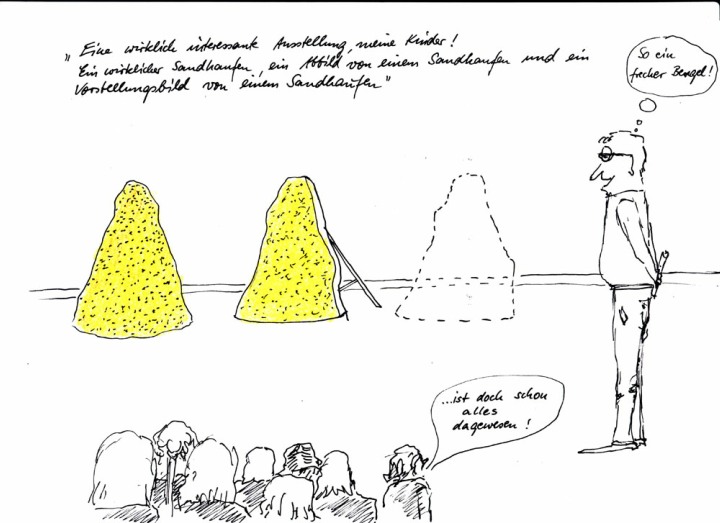 „Eine wirklich interessante Ausstellung, meine Kinder!
Ein wirklicher Sandhaufen, ein Abbild von einem Sandhaufen und ein
Vorstellungsbild von einem Sandhaufen"
So ein
frecher Bengel!
...ist doch schon
alles
dagewesen!